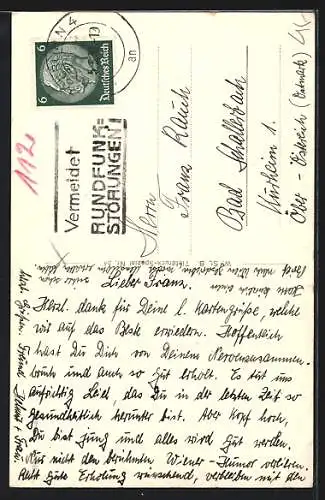 6 Deutsches Reich 6
Vermeidet
RUNDFUNK=
STÖRUNGEN!
112
Herrn
Franz Rauch
Bad Schallerbach
Kurheim 1.
Ober-Österreich (Ostmark)
Lieber Franz.
Herzl. dank für Deine l. Kartengrüße, welche
wir auf das Beste erwiedern. Hoffentlich
hast Du Dich von Deinem Nervenzusammen-
bruch und auch so gut erholt. Es tut uns
aufrichtig Leid, das Du in der letzten Zeit so
Gesundheitlich herunter bist. Aber Kopf hoch,
Du bist jung und alles wird gut werden.
Nur nicht den berühmten Wiener-Humor verlieren.
Recht gute Erholung wünschend, verbleiben mit den
Herzl. Grüßen